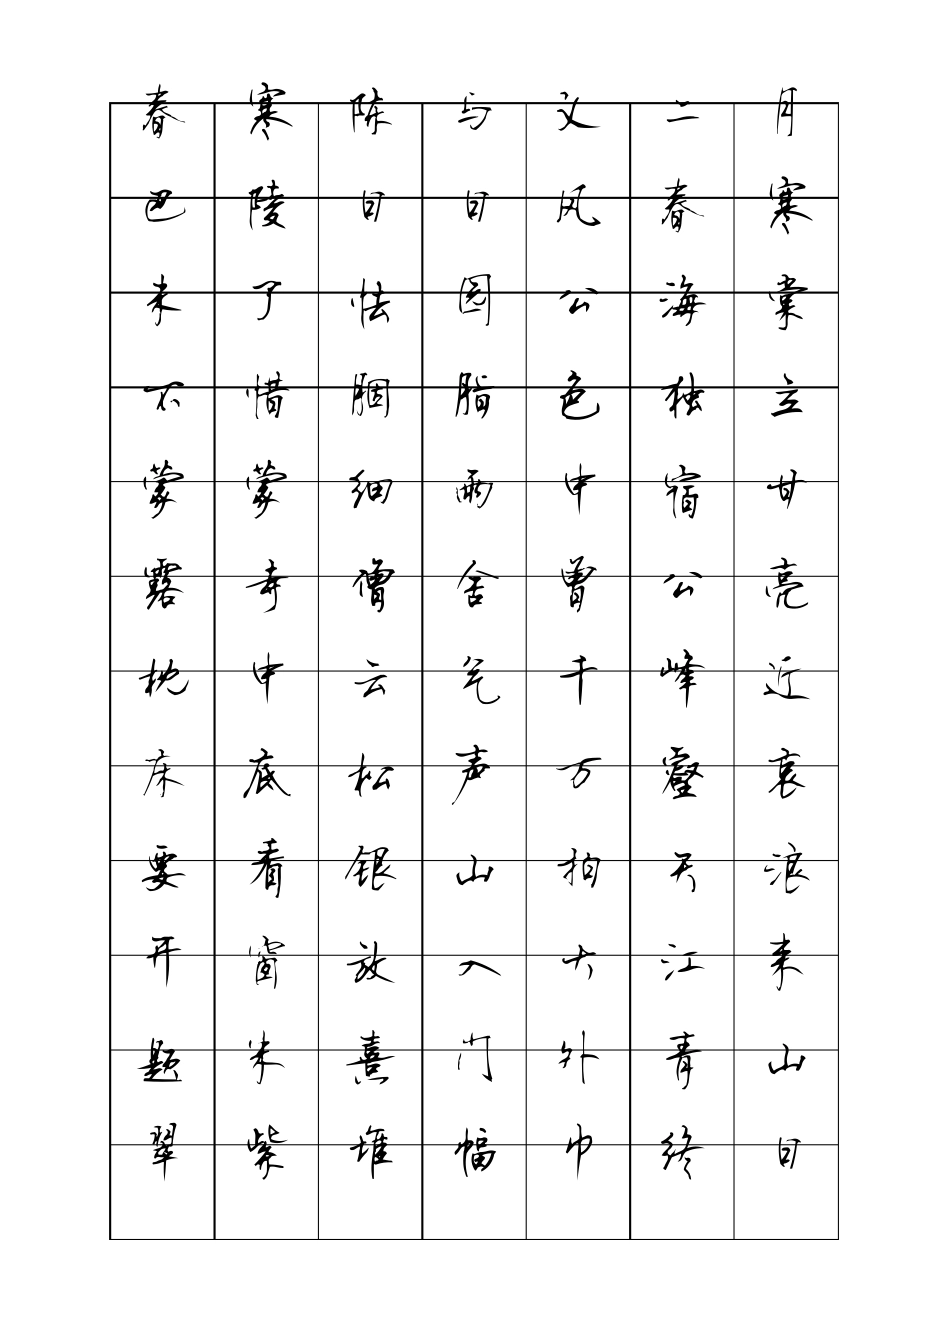 春寒陈与义二月
巴陵日日风春寒
未了怯园公海棠
不惜胭脂色独立
蒙蒙细雨中宿甘
露寺僧舍曾公亮
枕中云气千峰近
床底松声万壑哀
要看银山拍天浪
开窗放入大江来
题米熹门外青山
翠紫堆幅巾终日